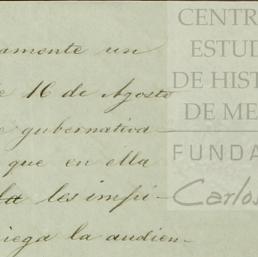 amente un
e 16 de Agosto
gubernativa
que en ella
les impi-
iega la audien-
CENTR
ESTUD
DE HIST
DE ME
FUNDA
Carlos